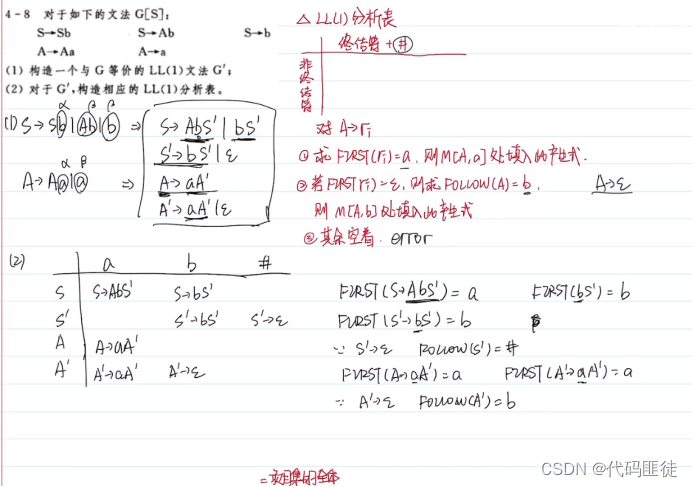 4-8 对于如下的文法 G[S]:
S→Sb S→Ab S→b
A→Aa A→a
(1) 构造一个与G等价的LL(1)文法 G′;
(2) 对于G′,构造相应的LL(1)分析表。
(1) S→Sb|Ab|b ⇒ S→AbS'|bS'
α β β
S'→bS'|ε
A→Aa|a ⇒ A→aA'
α β
A'→aA'|ε
△ LL(1)分析表
终结符+#
非终结符
对 A→ri
① 求FIRST(ri)=a, 则M[A,a]处填入的产生式.
② 若FIRST(ri)=ε, 则求FOLLOW(A)=b, A→ε
则M[A,b]处填入的产生式
③ 其余空着. error
(2)
a b #
S S→AbS' S→bS'
S' S'→bS' S'→ε
A A→aA'
A' A'→aA' A'→ε
FIRST(S→AbS')=a FIRST(bS')=b
FIRST(S'→bS')=b
∵ S'→ε FOLLOW(S')=#
FIRST(A→aA')=a FIRST(A'→aA')=a
∵ A'→ε FOLLOW(A')=b
CSDN @代码匪徒